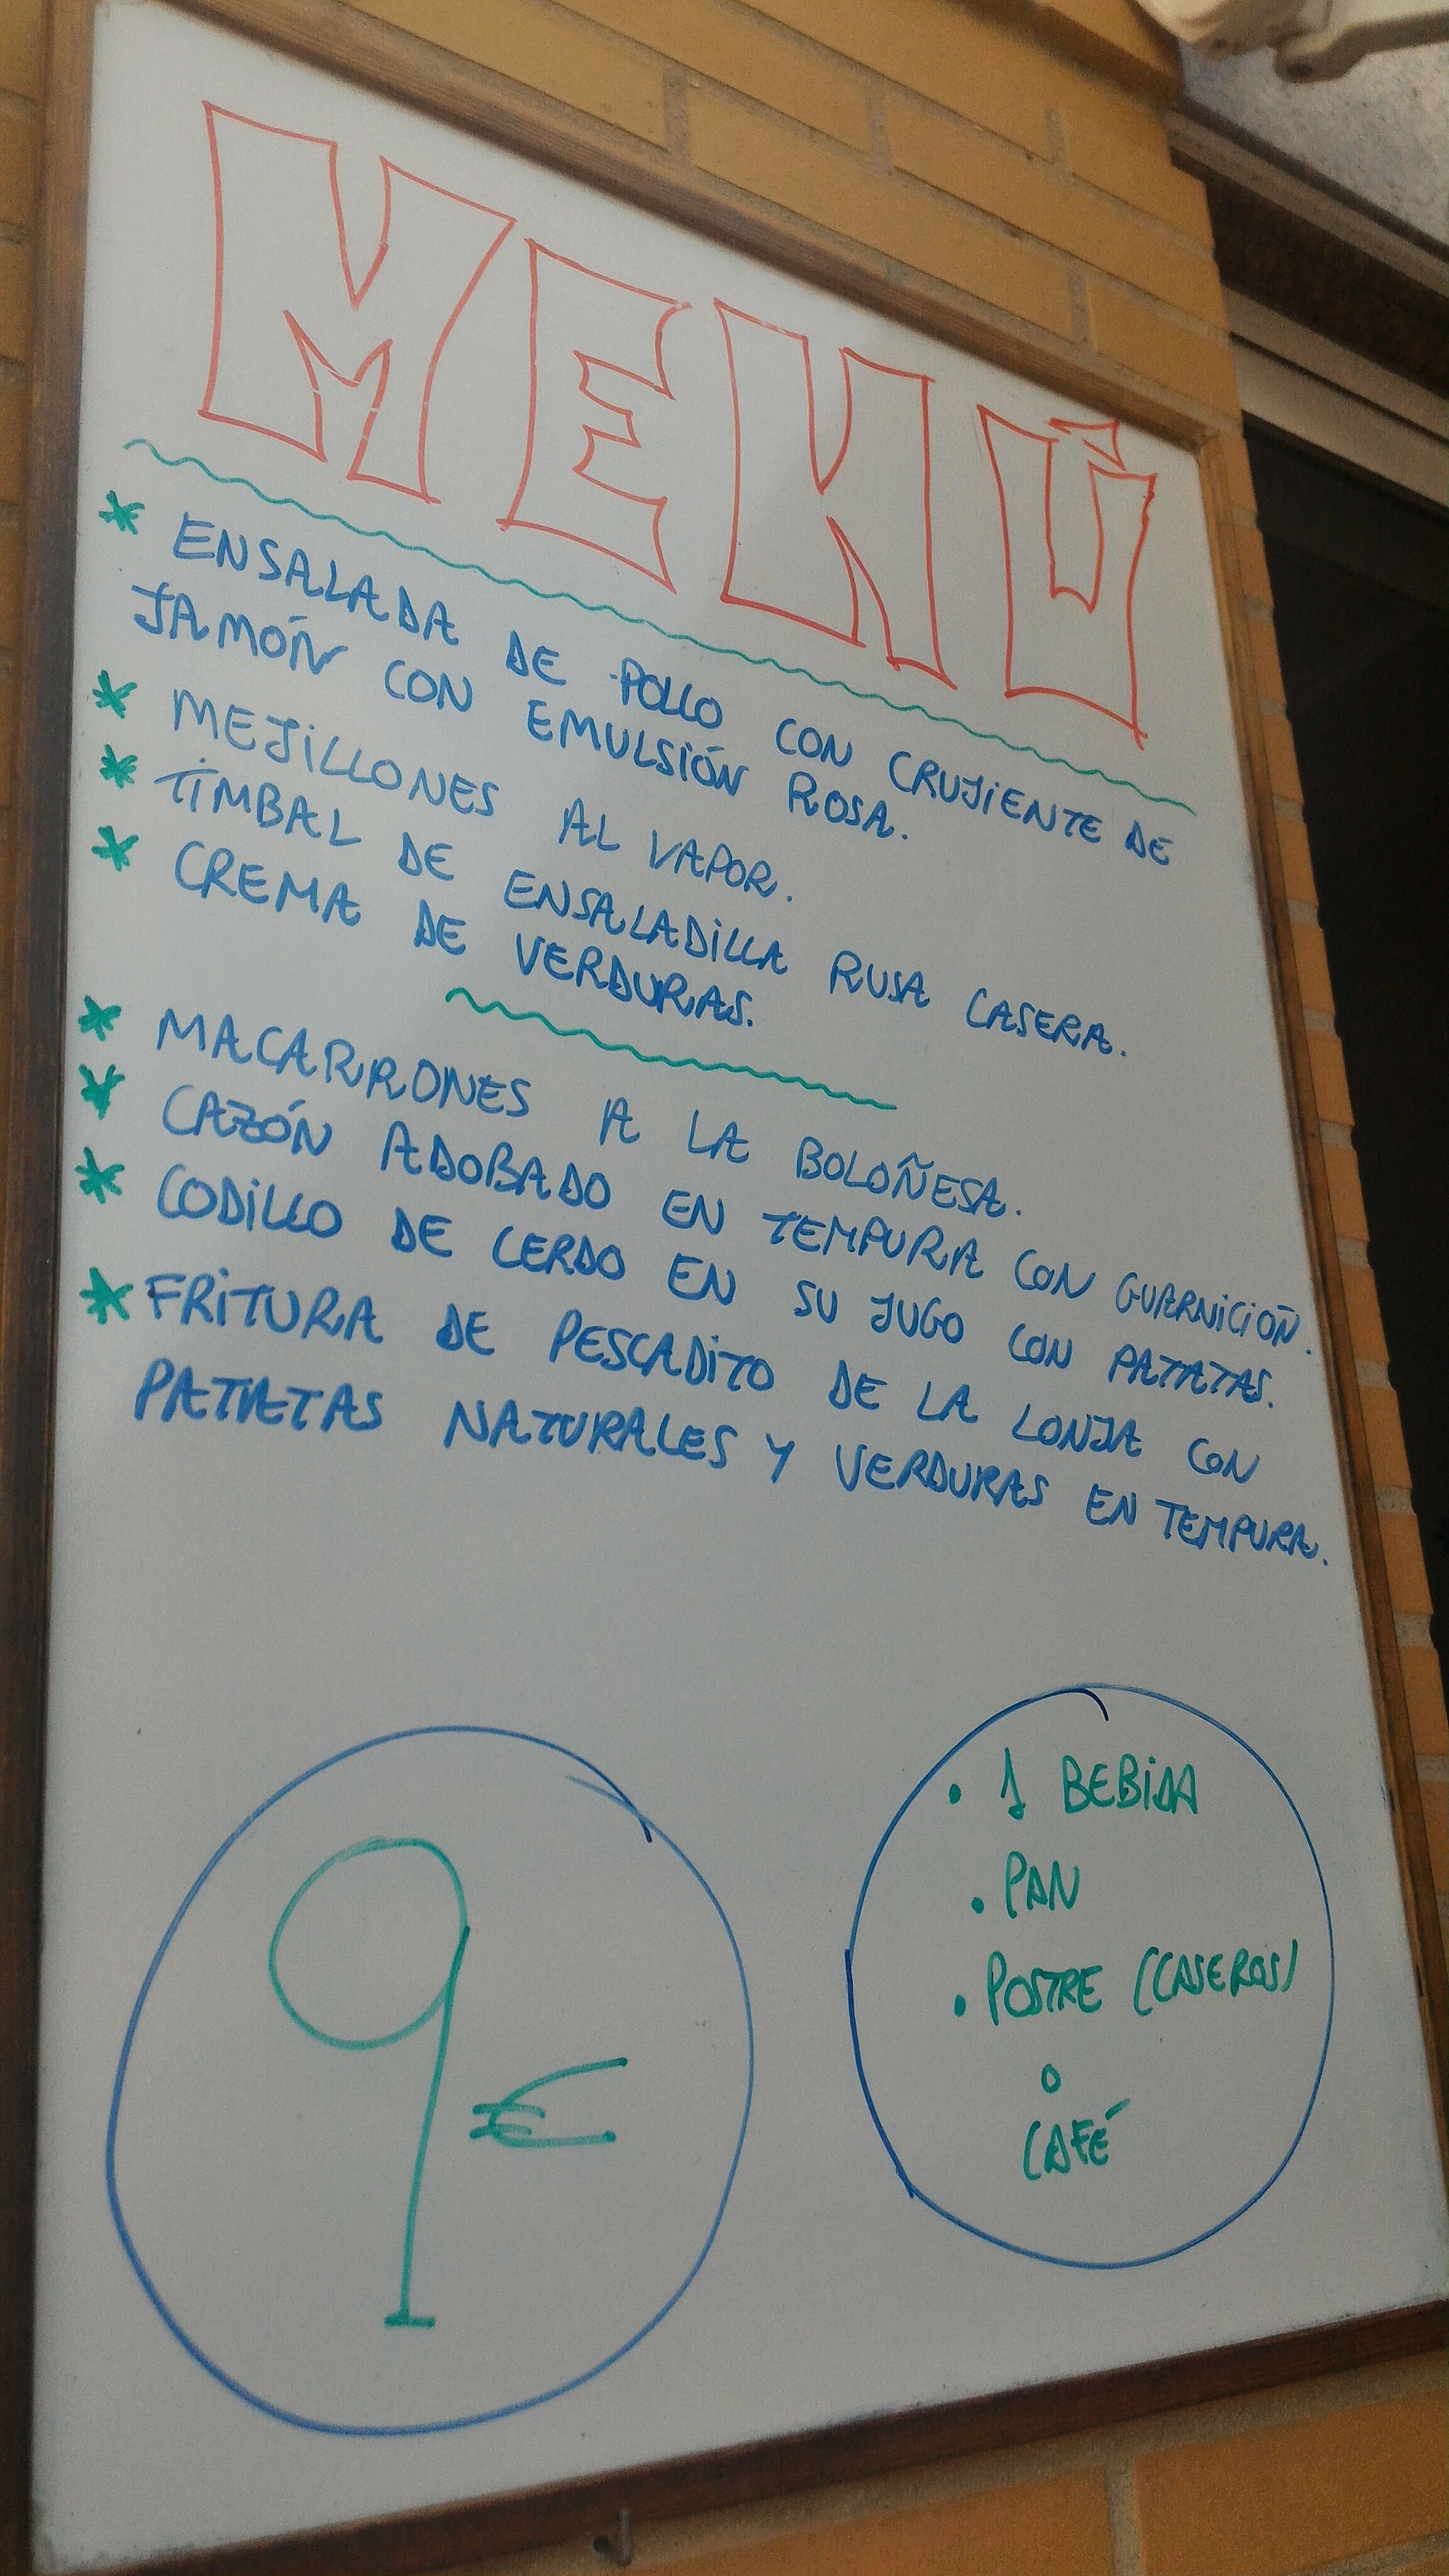 MENÚ
* ENSALADA DE POLLO CON CRUJIENTE DE
JAMÓN CON EMULSIÓN ROSA.
* MEJILLONES AL VAPOR.
* TIMBAL DE ENSALADILLA RUSA CASERA.
* CREMA DE VERDURAS.
* MACARRONES A LA BOLOÑESA.
* CAZÓN ADOBADO EN TEMPURA CON GUARNICIÓN.
* CODILLO DE CERDO EN SU JUGO CON PATATAS.
* FRITURA DE PESCADITO DE LA LONJA CON
PATATAS NATURALES Y VERDURAS EN TEMPURA.
9 €
• 1 BEBIDA
• PAN
• POSTRE (CASEROS)
o
CAFÉ